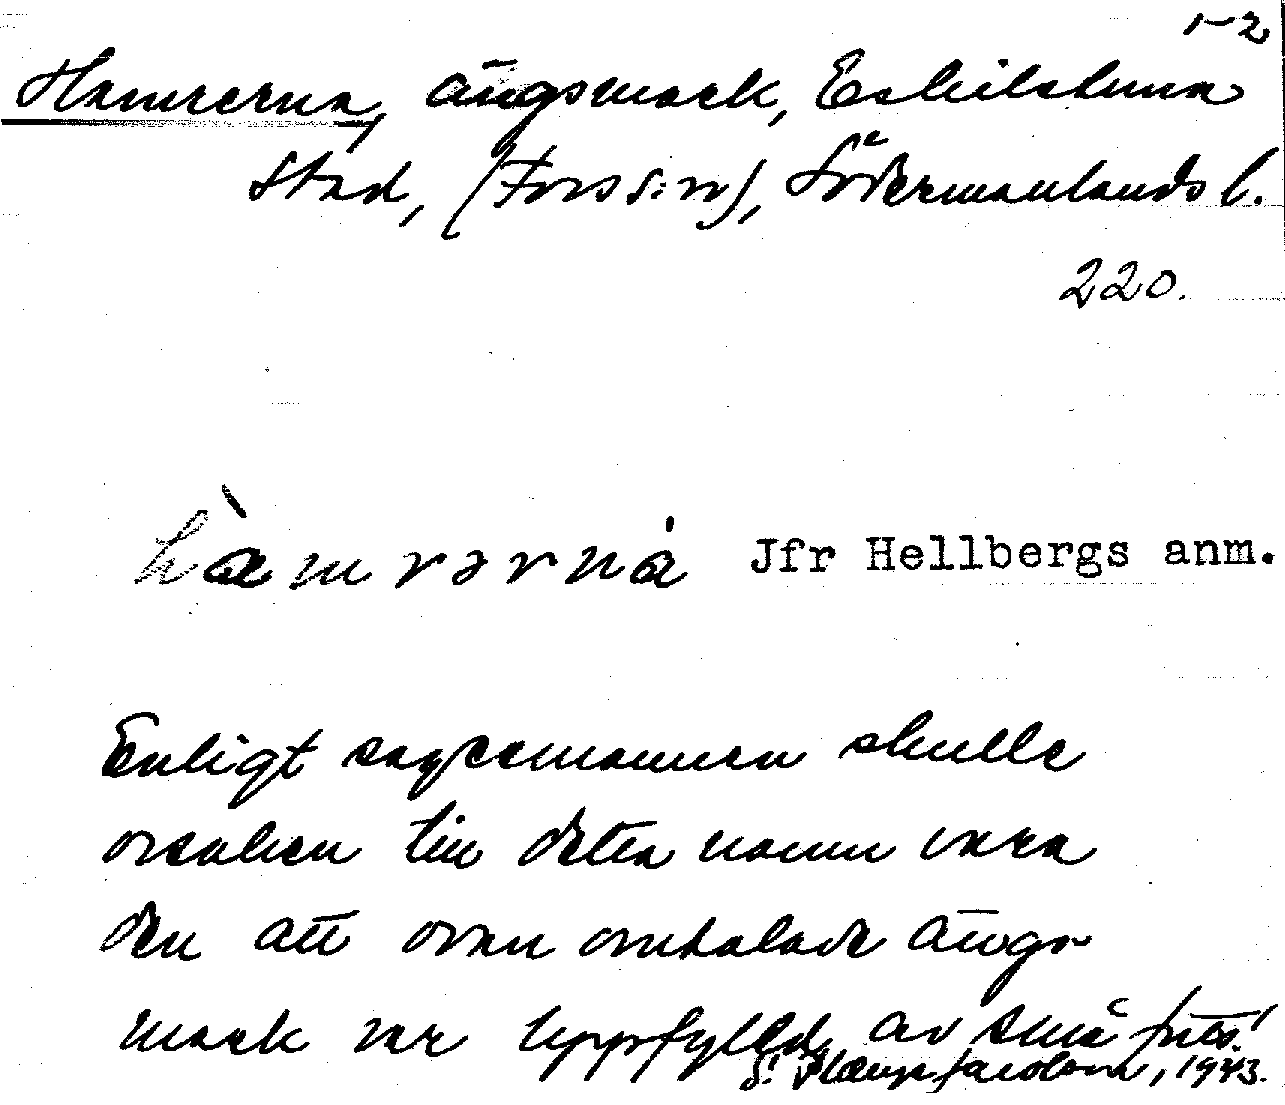 1-2
Hamrerna, ängsmark, Eskilstuna
stad, (Fors s:n), Södermanlands l.
220.
hàmrərnà Jfr Hellbergs anm.
Enligt sagesmannen skulle
orsaken till detta namn vara
den att ovan omtalade ängs-
mark var uppfylld av små
1943.